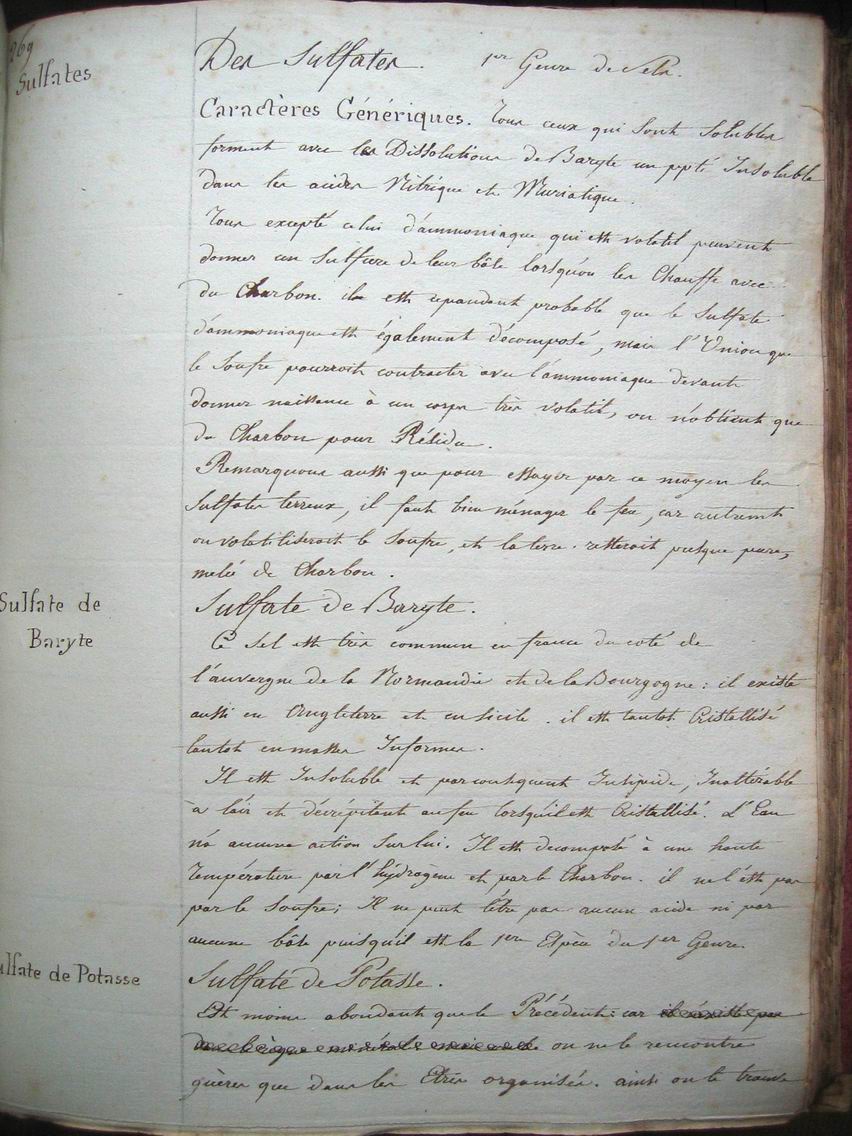 269
Sulfates
Des Sulfates. 1er Genre de Sels.
Caractères Génériques. Tous ceux qui sont solubles
forment avec les Dissolutions de Baryte un ppté Insoluble
dans les acides Nitrique et Muriatique.
Tous excepté celui d'ammoniaque qui est volatil peuvent
donner un Sulfure de leur bâse lorsqu'on les Chauffe avec
du Charbon. il est cependant probable que le Sulfate
d'ammoniaque est également décomposé, mais l'Union que
le Soufre pourroit contracter avec l'ammoniaque devant
donner naissance à un corps très volatil, on n'obtient que
du Charbon pour Résidu.
Remarquons aussi que pour essayer par ce moyen les
Sulfates terreux, il faut bien ménager le feu, car autremt
on volatiliseroit le Soufre, et la terre resteroit presque pure,
melée de Charbon.
Sulfate de
Baryte
Sulfate de Baryte.
Ce Sel est très commun en france du coté de
l'auvergne de la Normandie et de la Bourgogne: il existe
aussi en Angleterre et en Sicile. il est tantot Cristallisé
tantot en masses Informes.
Il est Insoluble et par conséquent Insipide, Inaltérable
à l'air et décrépitant au feu lorsqu'il est Cristallisé. L'Eau
n'a aucune action sur lui. Il est decomposé à une haute
Température par l'hydrogène et par le Charbon. il ne l'est pas
par le Soufre; Il ne peut l'être par aucun acide ni par
aucune bâse puisqu'il est la 1ere Espèce du 1er Genre.
Sulfate de Potasse
Sulfate de Potasse.
Est moins abondant que le Précédent: car il n'existe pas
on ne le rencontre
guères que dans les Etres organisés. ainsi on le trouve